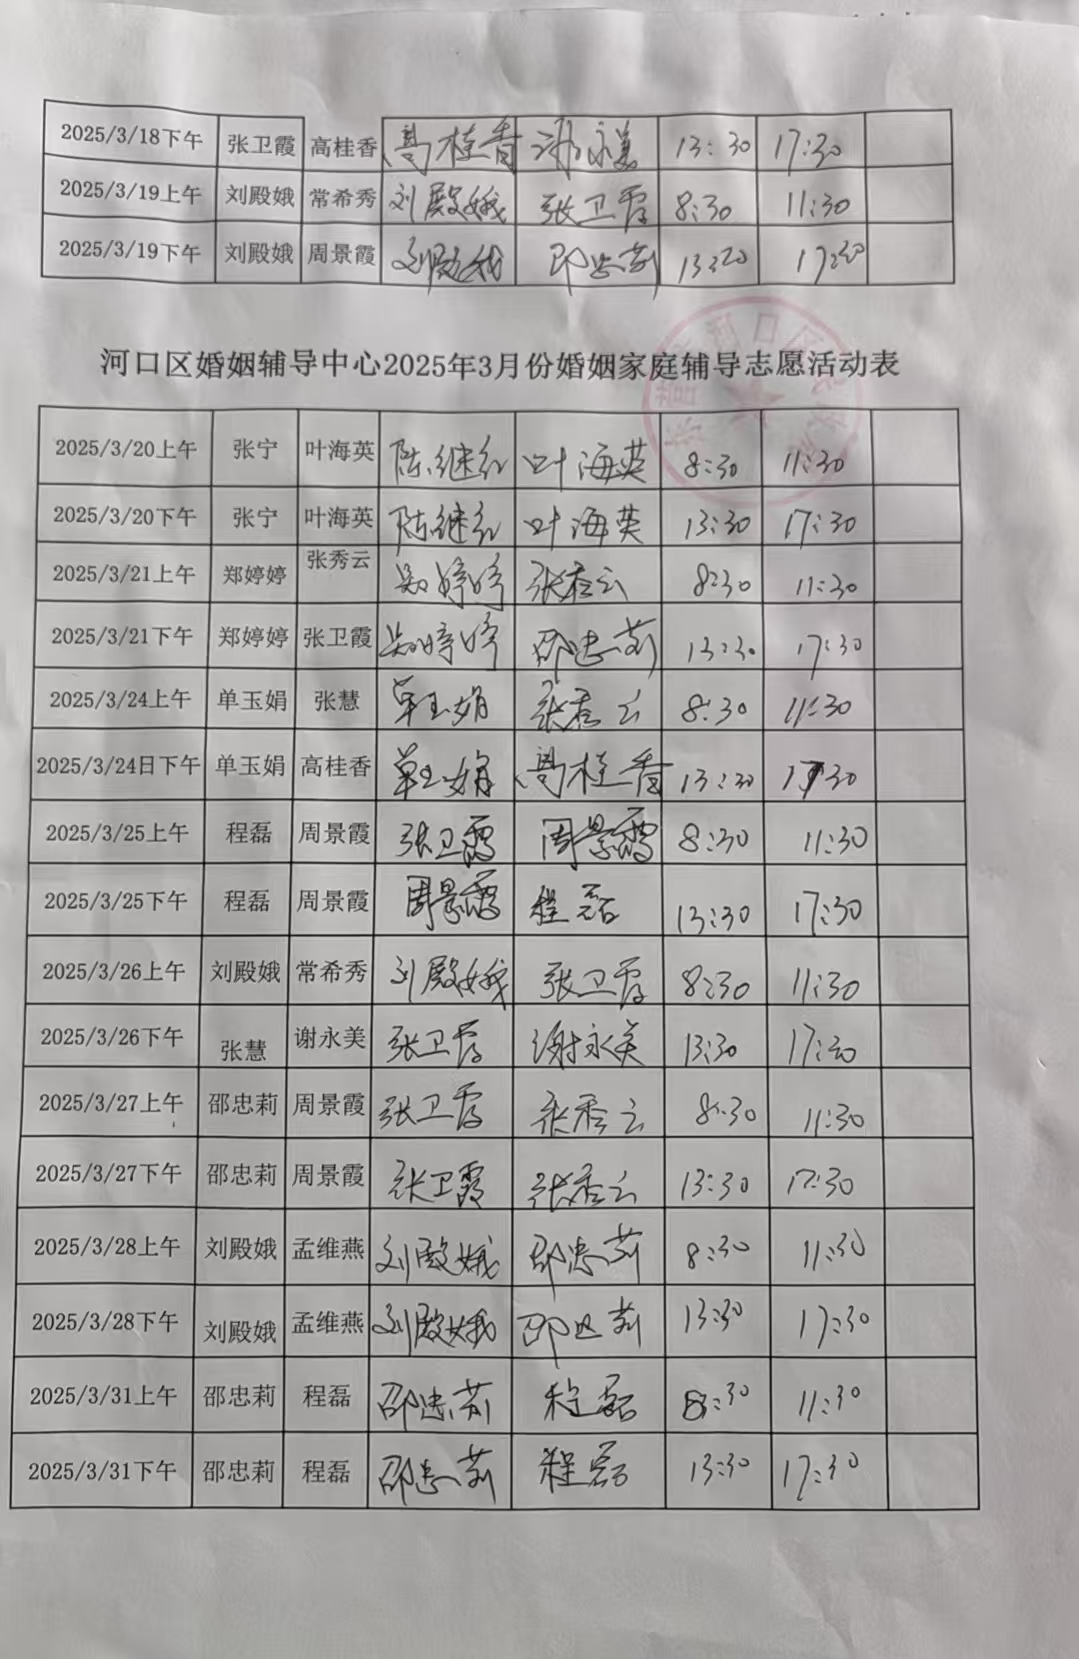 2025/3/18下午 张卫霞 高桂香 高桂香 谢永美 13:30 17:30
2025/3/19上午 刘殿娥 常希秀 刘殿娥 张卫霞 8:30 11:30
2025/3/19下午 刘殿娥 周景霞 刘殿娥 邵忠莉 13:30 17:30
河口区婚姻辅导中心2025年3月份婚姻家庭辅导志愿活动表
2025/3/20上午 张宁 叶海英 陈继红 叶海英 8:30 11:30
2025/3/20下午 张宁 叶海英 陈继红 叶海英 13:30 17:30
2025/3/21上午 郑婷婷 张秀云 郑婷婷 张秀云 8:30 11:30
2025/3/21下午 郑婷婷 张卫霞 郑婷婷 邵忠莉 13:30 17:30
2025/3/24上午 单玉娟 张慧 单玉娟 张秀云 8:30 11:30
2025/3/24日下午 单玉娟 高桂香 单玉娟 高桂香 13:30 17:30
2025/3/25上午 程磊 周景霞 张卫霞 周景霞 8:30 11:30
2025/3/25下午 程磊 周景霞 周景霞 程磊 13:30 17:30
2025/3/26上午 刘殿娥 常希秀 刘殿娥 张卫霞 8:30 11:30
2025/3/26下午 张慧 谢永美 张卫霞 谢永美 13:30 17:30
2025/3/27上午 邵忠莉 周景霞 张卫霞 张秀云 8:30 11:30
2025/3/27下午 邵忠莉 周景霞 张卫霞 张秀云 13:30 17:30
2025/3/28上午 刘殿娥 孟维燕 刘殿娥 邵忠莉 8:30 11:30
2025/3/28下午 刘殿娥 孟维燕 刘殿娥 邵忠莉 13:30 17:30
2025/3/31上午 邵忠莉 程磊 邵忠莉 程磊 8:30 11:30
2025/3/31下午 邵忠莉 程磊 邵忠莉 程磊 13:30 17:30